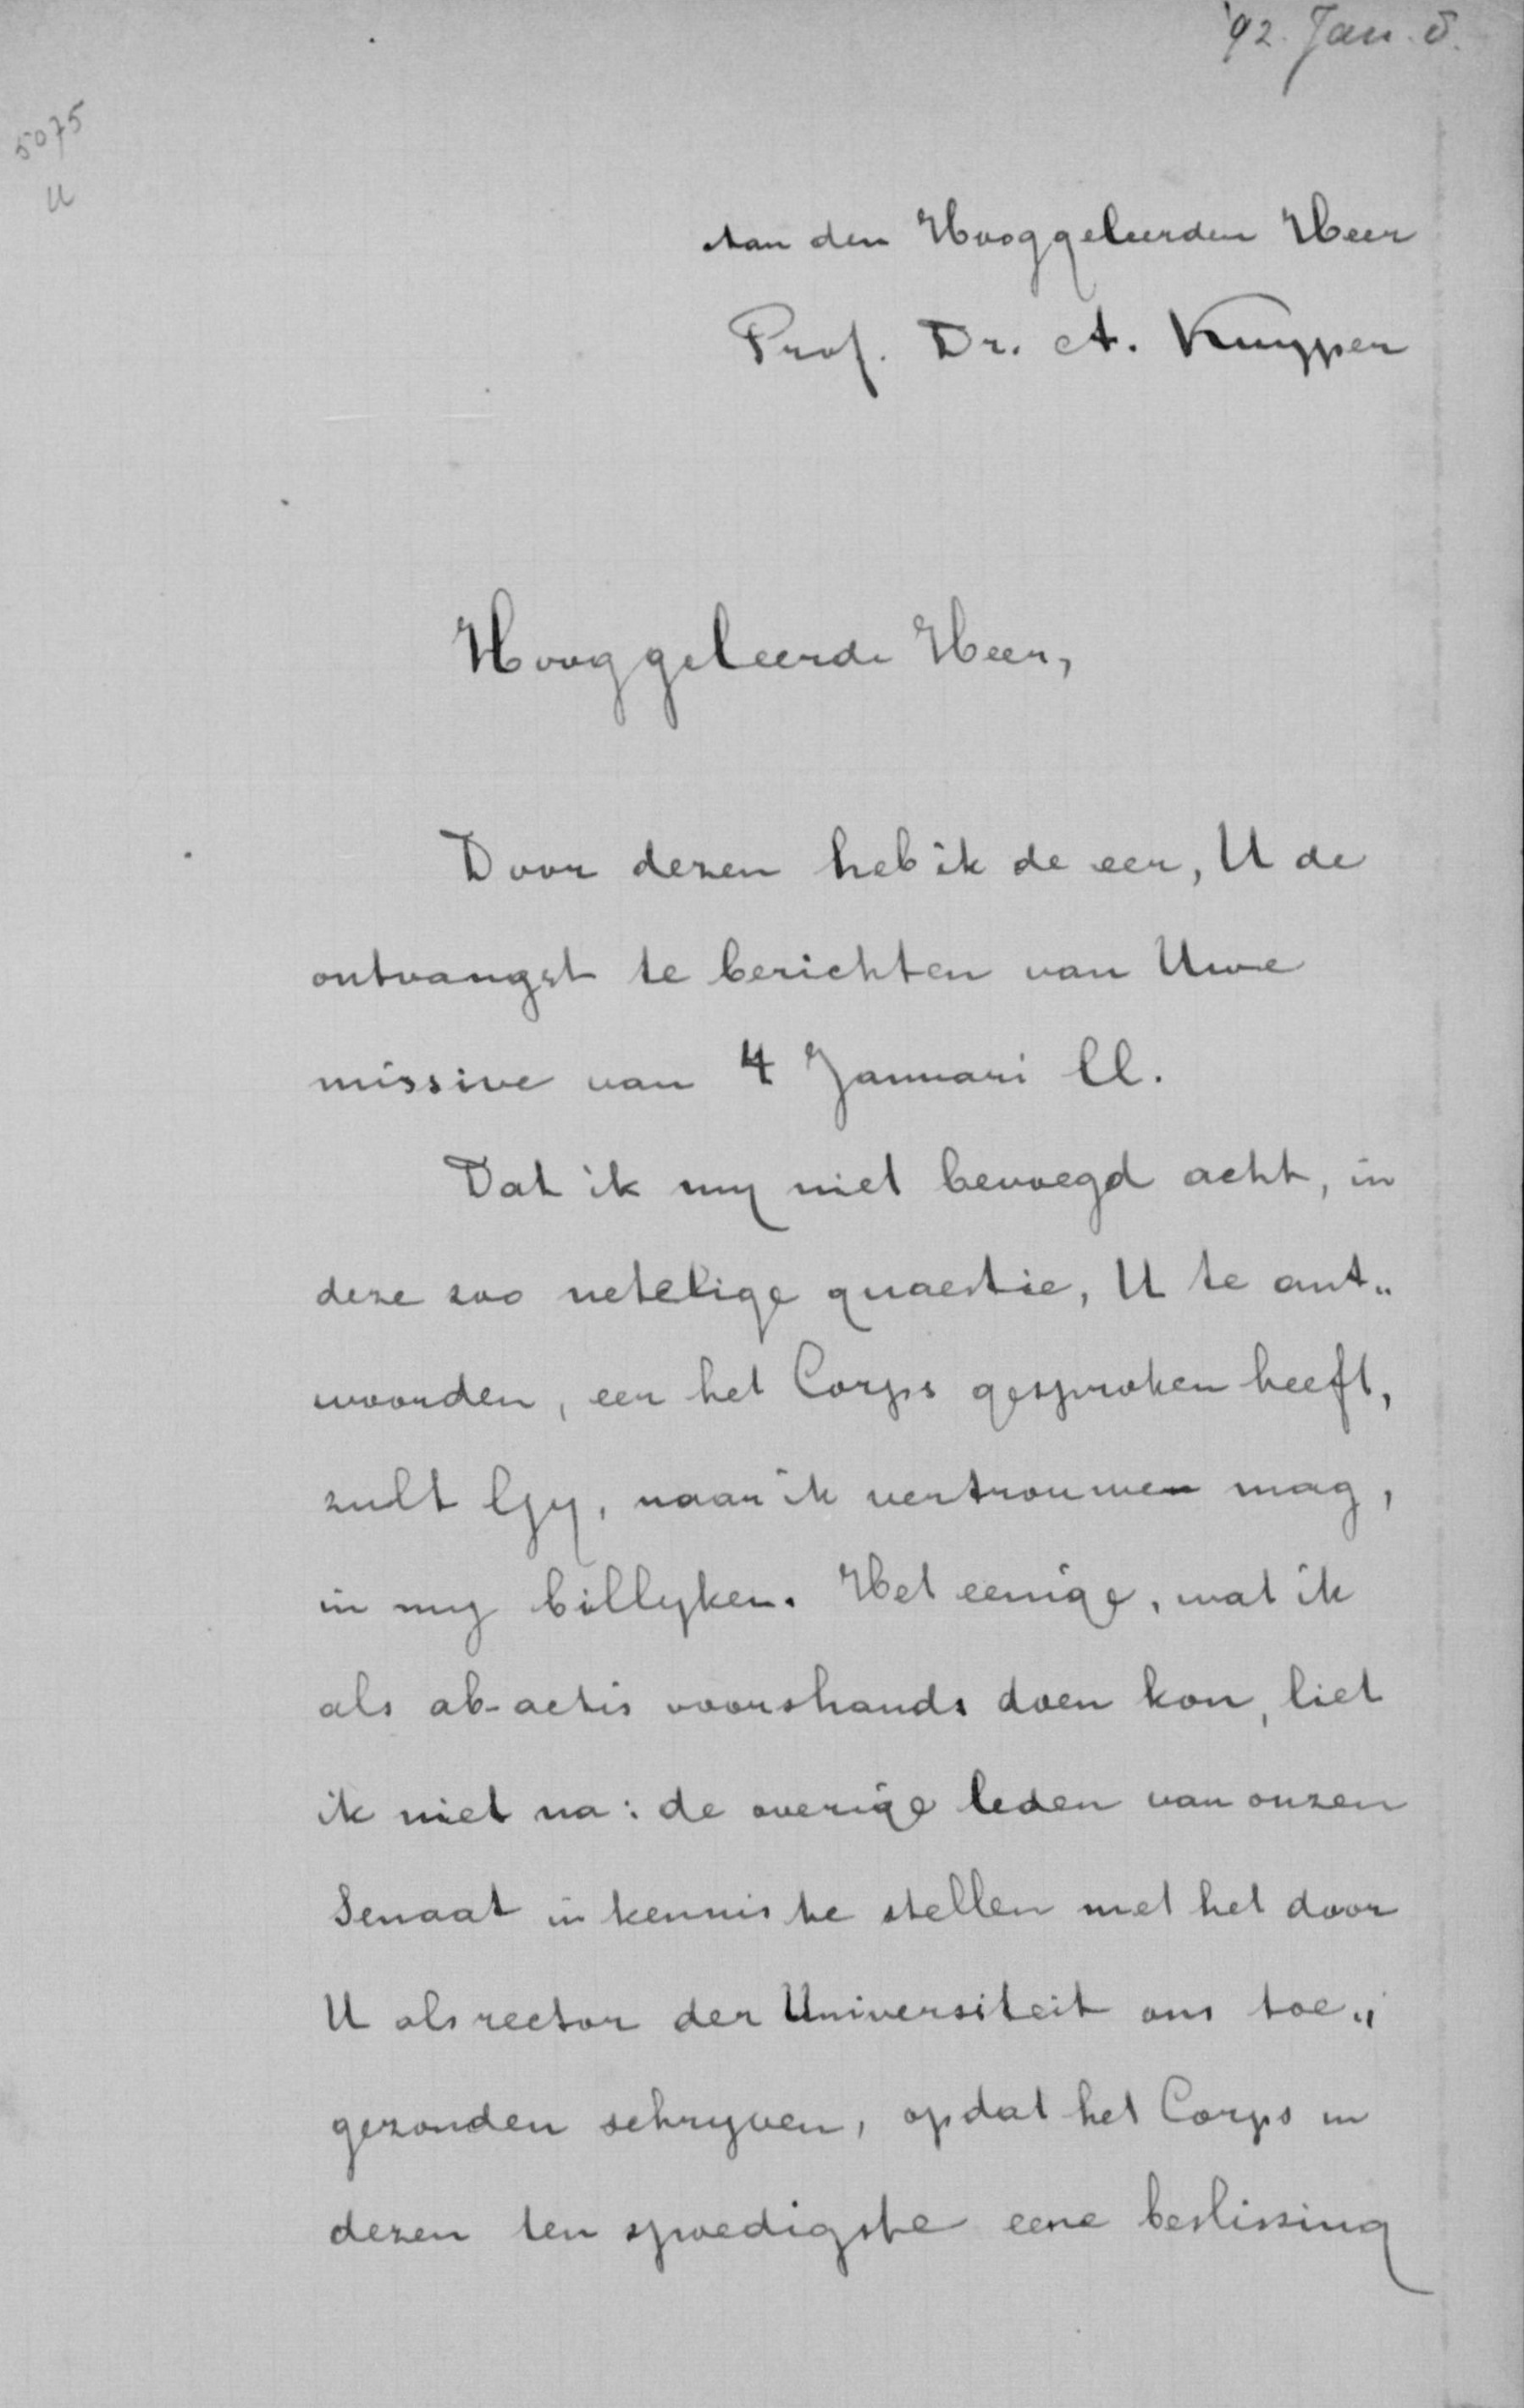 '92. Jan. 5.
5075
U
Aan den Hooggeleerden Heer
Prof. Dr. A. Kuyper
Hooggeleerde Heer,
Door dezen heb ik de eer, U de
ontvangst te berichten van Uwe
missive van 4 Januari ll.
Dat ik my niet bevoegd acht, in
deze zoo netelige quaestie, U te ant„
woorden, eer het Corps gesproken heeft,
zult Gy, naar ik vertrouwen mag,
in my billyken. Het eenige, wat ik
als ab-actis voorshands doen kon, liet
ik niet na: de overige leden van onzen
Senaat in kennis te stellen met het door
U als rector der Universiteit ons toe„
gezonden schryven, opdat het Corps in
dezen ten spoedigste eene beslissing